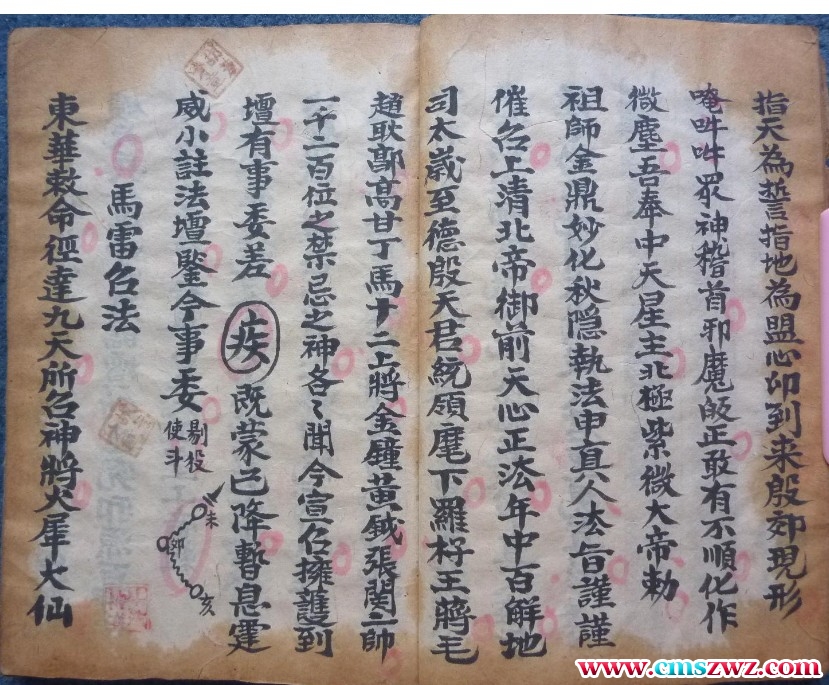 指天為誓指地為盟心印到来殷郊現形
唵吽吽眾神稽首邪魔皈正敢有不順化作
微塵吾奉中天星主北極紫微大帝勅
祖師金鼎妙化秋隐執法申真人法旨謹謹
催召上清北帝御前天心正法年中百解地
司太歳至德殷天君統領麾下羅杍王蒋毛
趙耿郭高甘丁馬十二上將金鐘黄鉞張関二帥
一千二百位之禁忌之神各々聞今宣召擁護到
壇有事委差 疾 既蒙已降暫息霆
威小註法壇鑒今事委
剔役
使斗
未
卯
亥
馬雷召法
東華敕命徑達九天所召神將火犀大仙
www.cmszwz.com